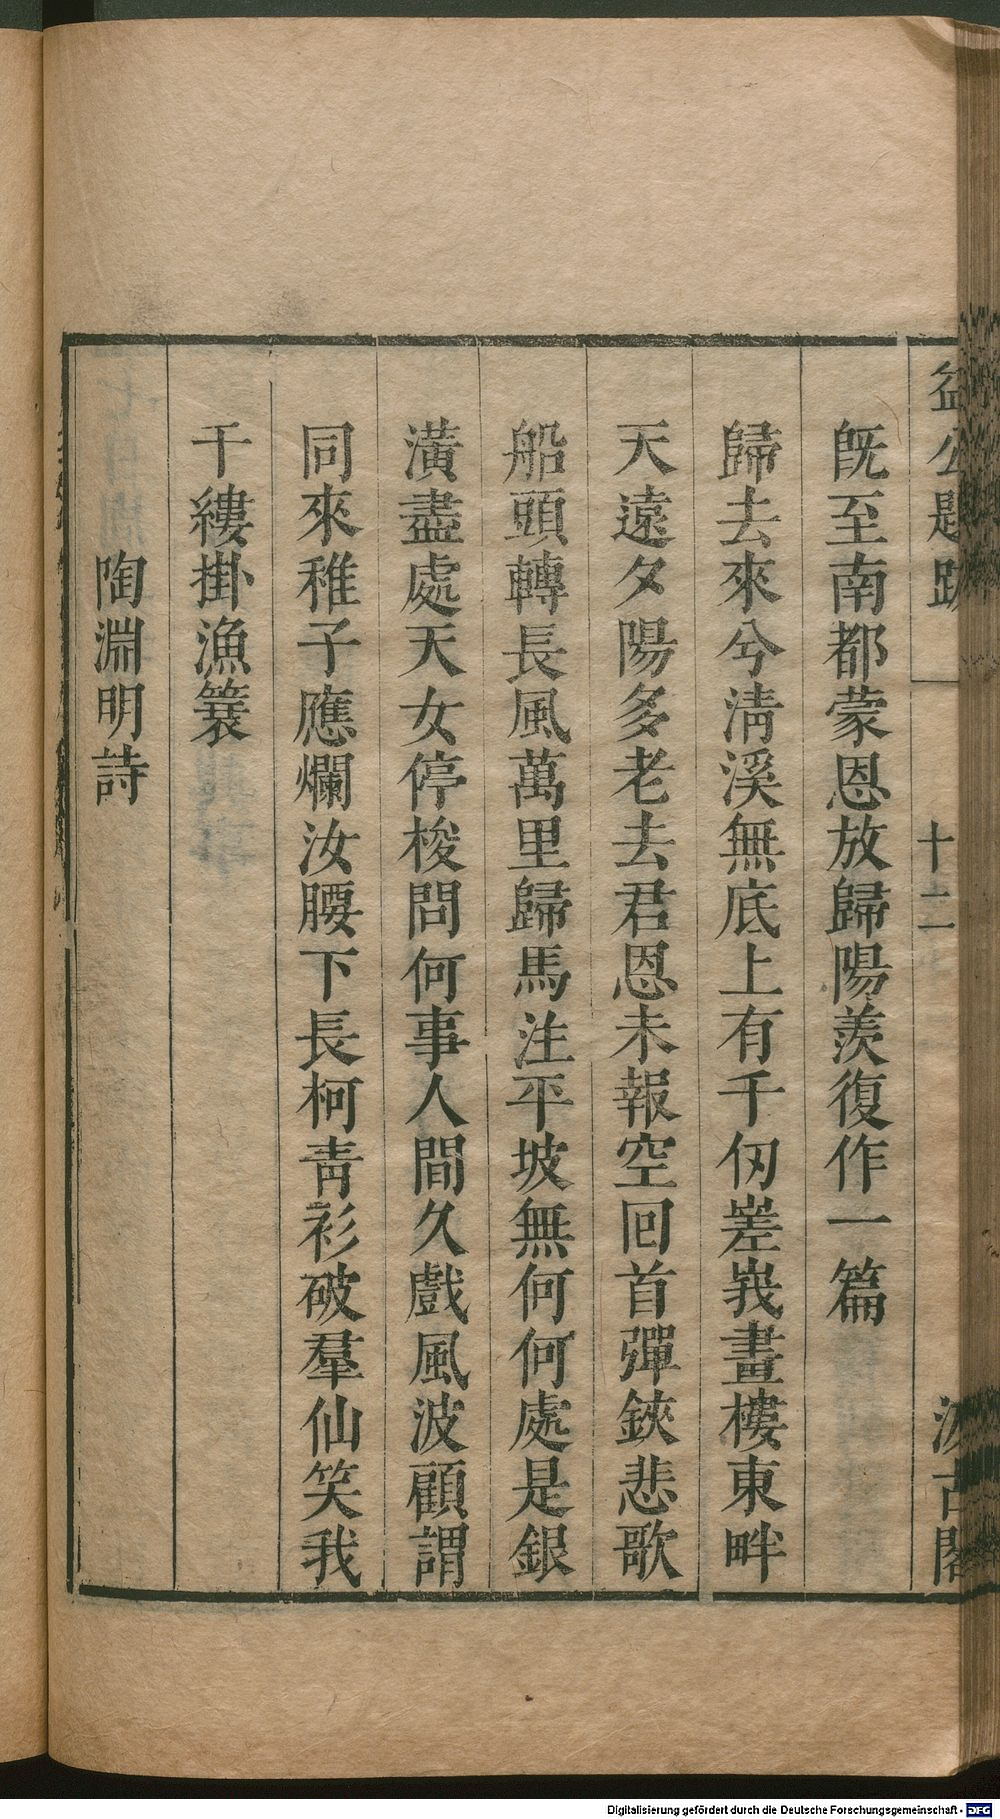 益公題跋 十二 汲古閣
旣至南都蒙恩放歸陽羨復作一篇
歸去來兮淸溪無底上有千仞嵳峩畫樓東畔
天遠夕陽多老去君恩未報空回首彈鋏悲歌
船頭轉長風萬里歸馬注平坡無何何處是銀
潢盡處天女停梭問何事人間久戲風波顧謂
同來稚子應爛汝腰下長柯靑衫破羣仙笑我
千縷掛漁簑
陶淵明詩
Digitalisierung gefördert durch die Deutsche Forschungsgemeinschaft - DFG